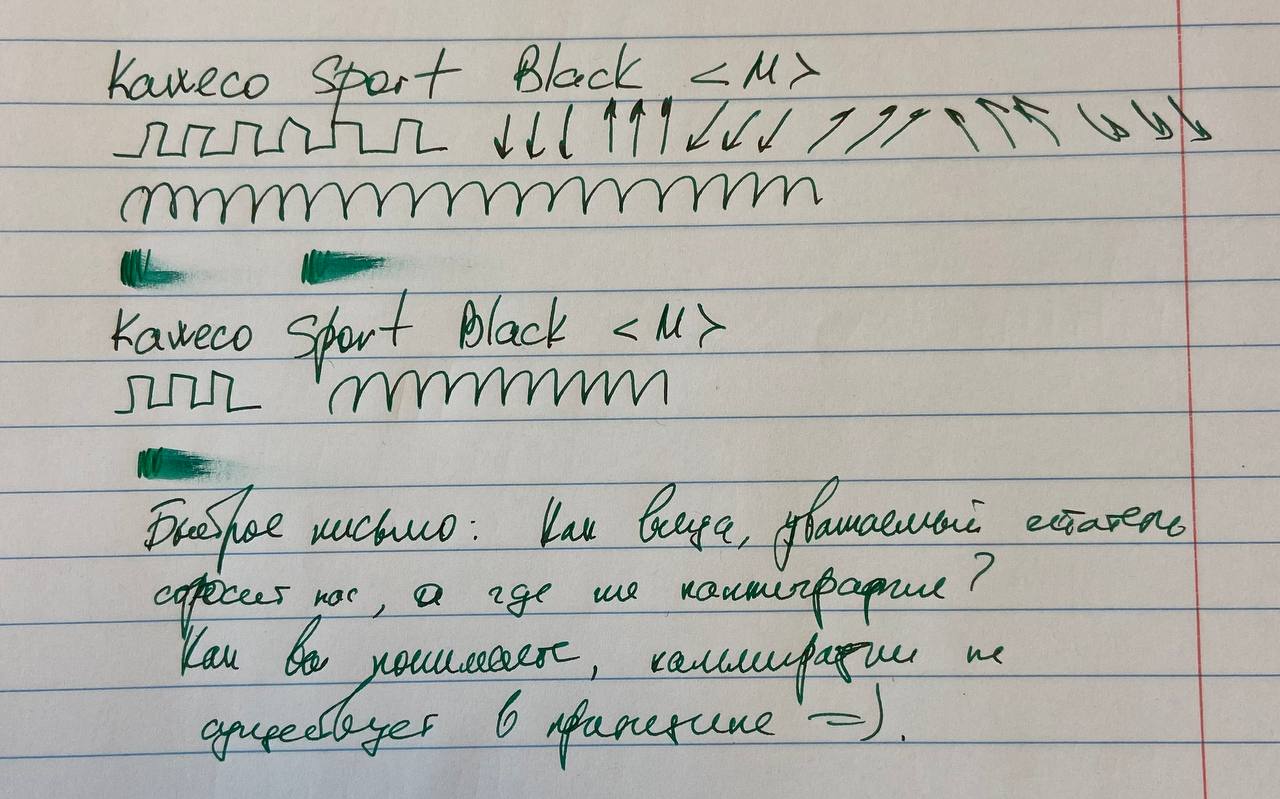 Kaweco Sport Black <M>
Kaweco Sport Black <M>
Быстрое письмо: Как всегда, уважаемый читатель
спросит нас, а где же каллиграфия?
Как вы понимаете, каллиграфии не
существует в практике =).